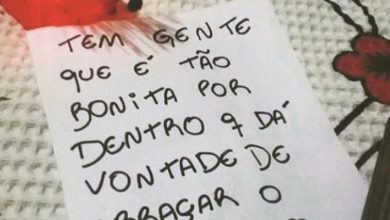 TEM GENTE
QUE É TÃO
BONITA POR
DENTRO Q DÁ
VONTADE DE
ABRAÇAR O